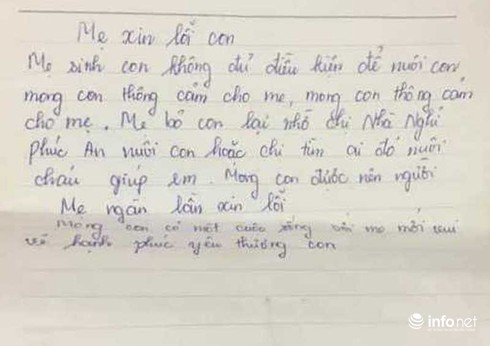 Mẹ xin lỗi con
Mẹ sinh con không đủ điều kiện để nuôi con
mong con thông cảm cho mẹ, mong con thông cảm
cho mẹ. Mẹ bỏ con lại nhờ chị Nhà Nghỉ
Phúc An nuôi con hoặc chị tìm ai đó nuôi
cháu giúp em. Mong con được nên người
Mẹ ngàn lần xin lỗi
Mong con có một cuộc sống với mẹ mới vui
vẻ hạnh phúc yêu thương con
infonet